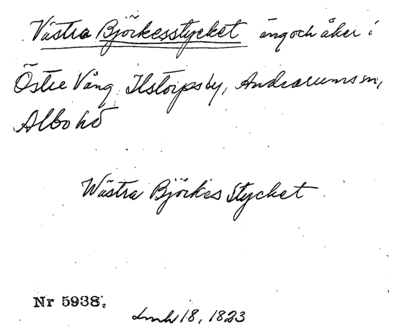 Västra Björkesstycket äng och åker i
Östre Vång Ilstorps by, Andrarums sn,
Albo hd
Wästra Björkes Stycket
Nr 5938.
Lmh 18, 1823